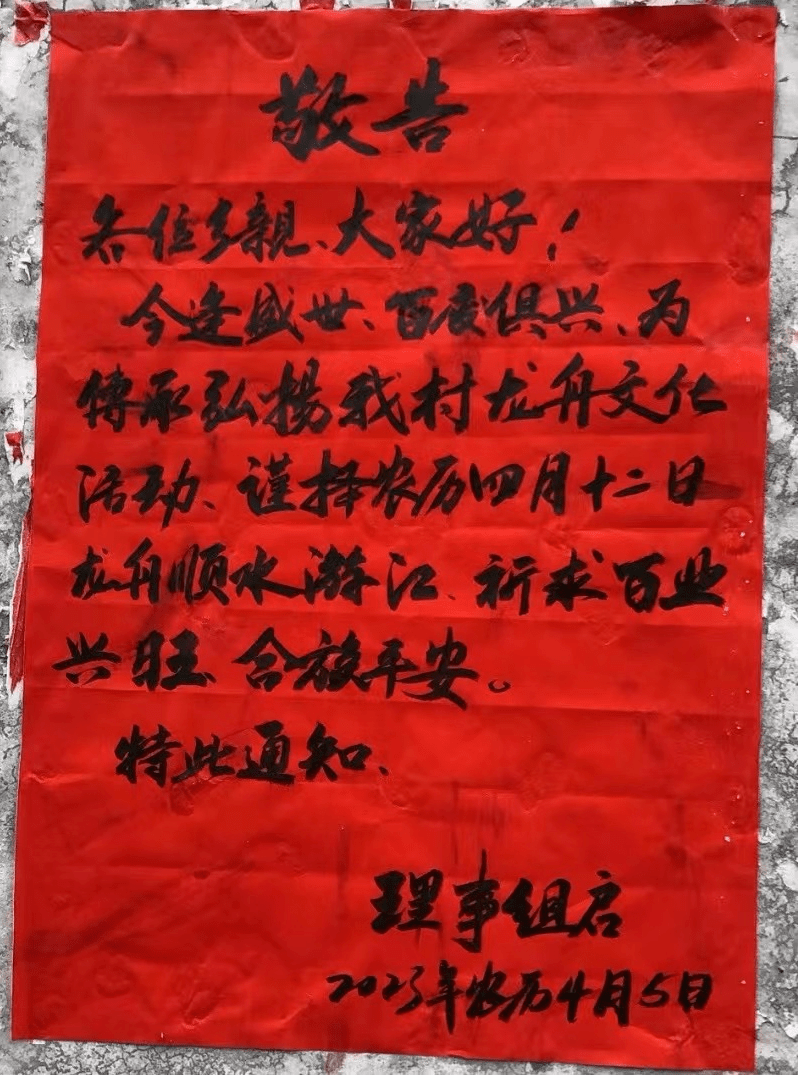 敬告
各位乡親、大家好！
今逢盛世、百废俱兴、为
傳承弘揚我村龙舟文化
活动、谨择农历四月十二日
龙舟顺水游江、祈求百业
兴旺、合族平安。
特此通知、
理事组启
2023年农历4月5日